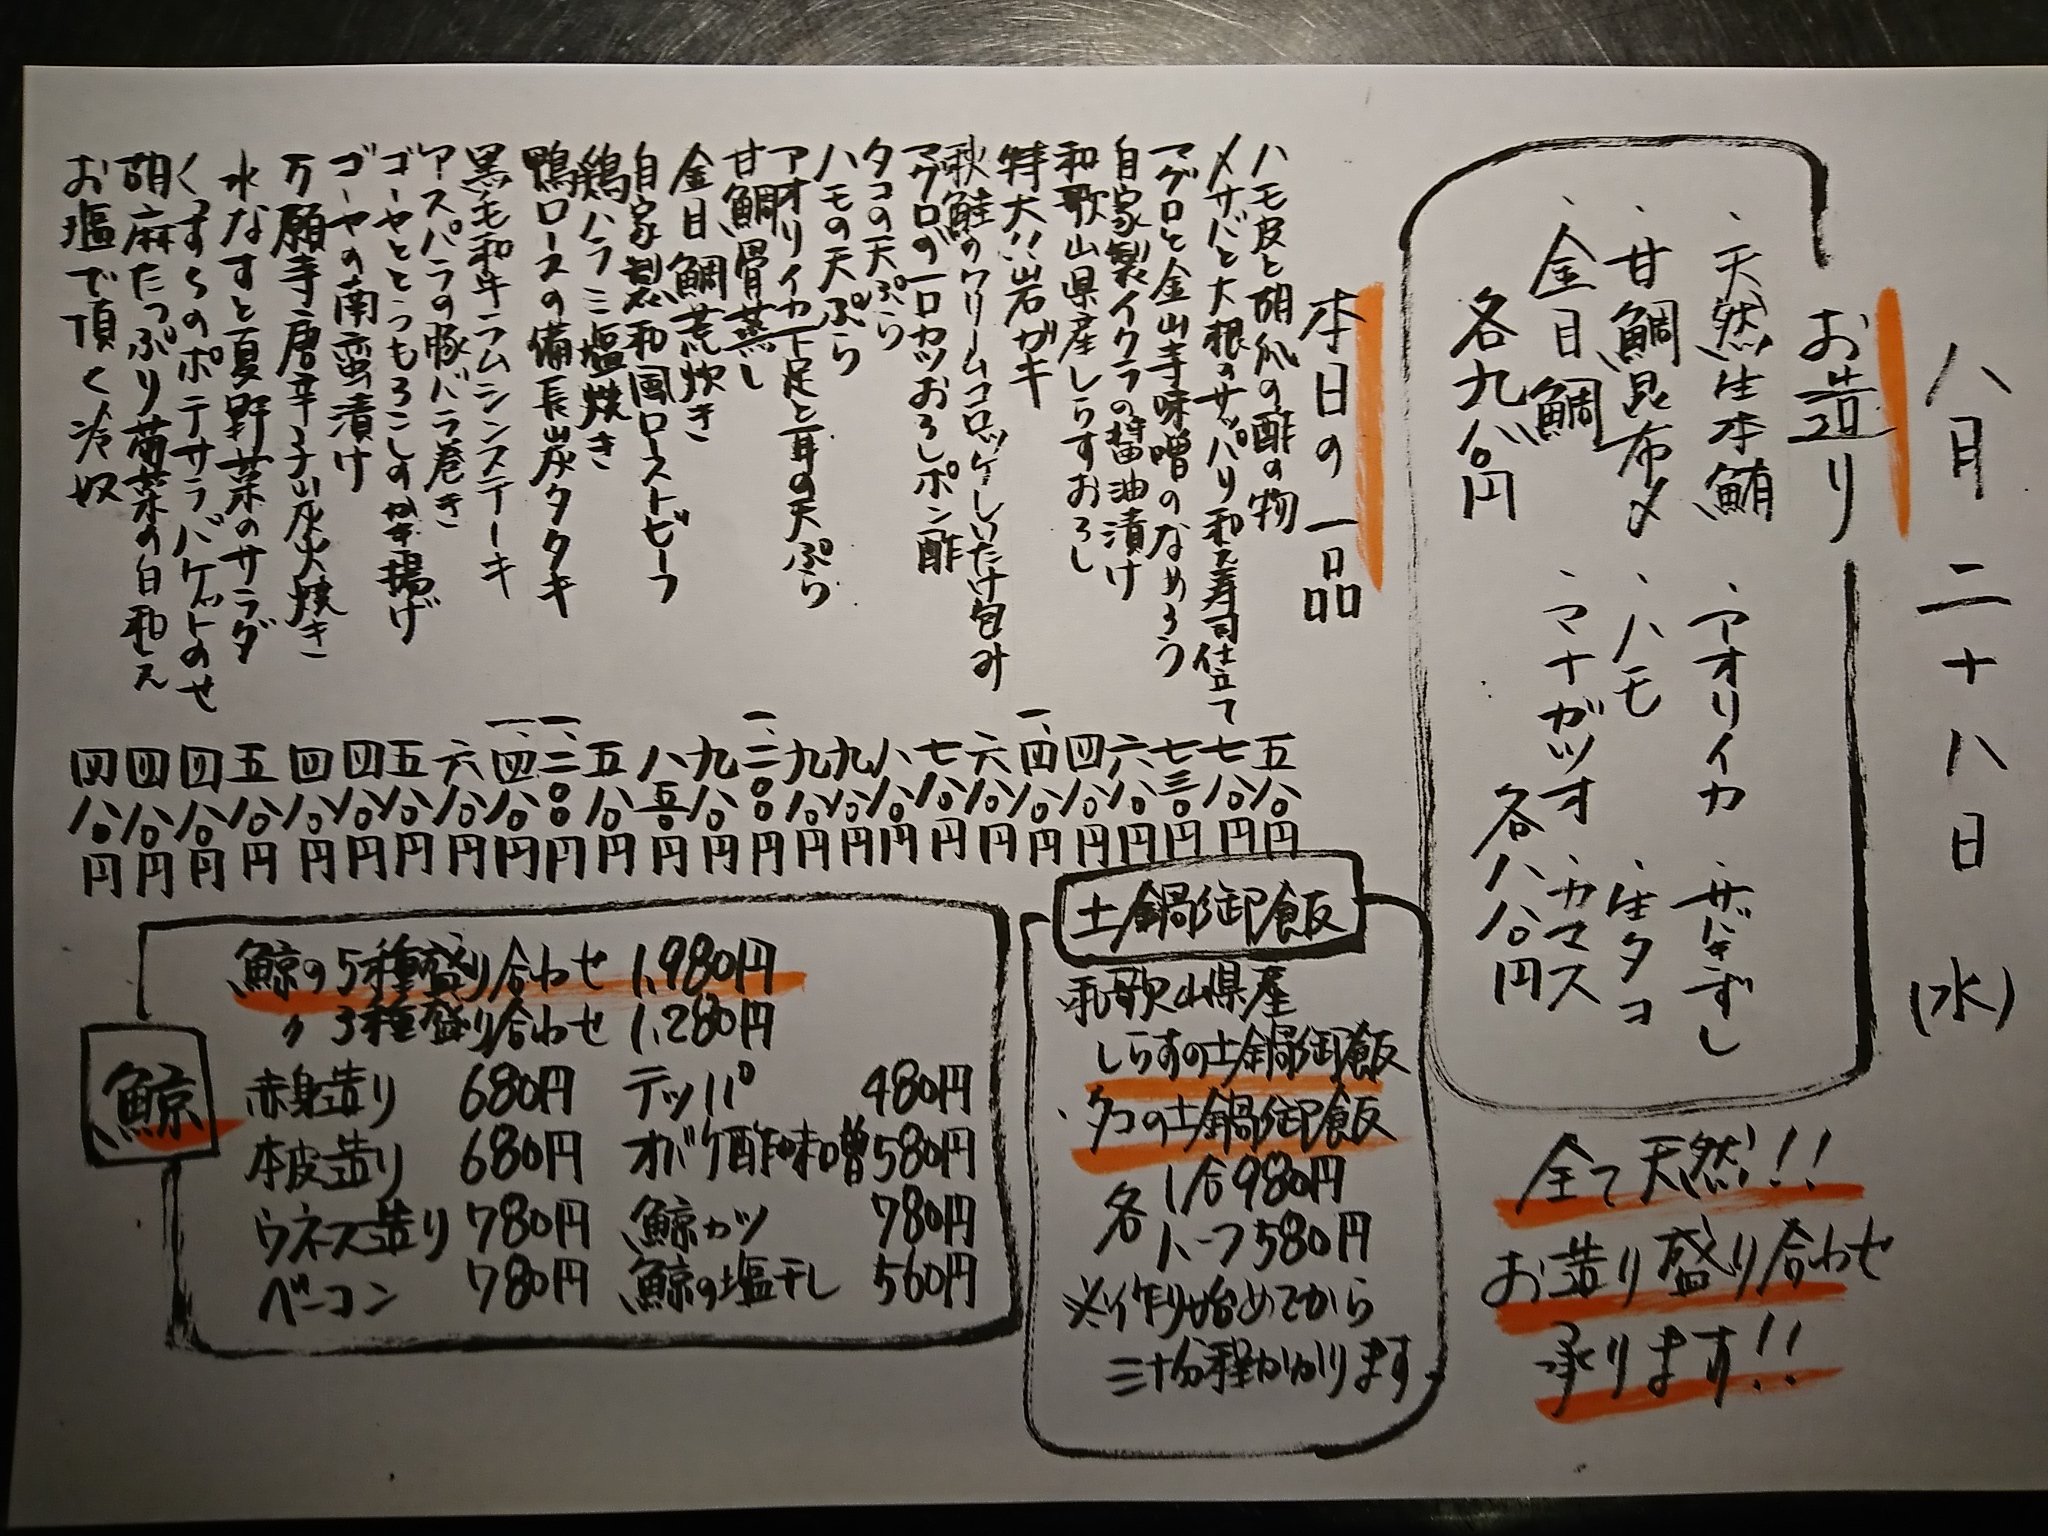 八月二十八日(水)
お造り
・天然生本鮪 ・アオリイカ ・サバきずし
・甘鯛昆布〆 ・ハモ ・生タコ
・金目鯛 ・マナガツオ ・カマス
各九八〇円 各八八〇円
全て天然!!
お造り盛り合わせ
承ります!!
本日の一品
ハモ皮と胡瓜の酢の物 五八〇円
〆サバと大根のサッパリ和え寿司仕立て 七八〇円
マグロと金山寺味噌のなめろう 七三〇円
自家製イクラの醤油漬け 六八〇円
和歌山県産しらすおろし 四八〇円
特大!!岩ガキ 一、四八〇円
秋鮭のクリームコロッケしいたけ包み 六八〇円
マグロの一口カツおろしポン酢 七八〇円
タコの天ぷら 八八〇円
ハモの天ぷら 九八〇円
アオリイカ下足と耳の天ぷら 九八〇円
甘鯛骨蒸し 一、二〇〇円
金目鯛荒炊き 九八〇円
自家製和風ローストビーフ 八五〇円
鶏ハラミ塩焼き 五八〇円
鴨ロースの備長炭タタキ 一、二〇〇円
黒毛和牛ラムシンステーキ 一、四八〇円
アスパラの豚バラ巻き 六八〇円
ゴーヤととうもろこしのかき揚げ 五八〇円
ゴーヤの南蛮漬け 四八〇円
万願寺唐辛子炭火焼き 四八〇円
水なすと夏野菜のサラダ 五八〇円
のポテサラバケットのせ 四八〇円
胡麻たっぷり菊菜の白和え 四八〇円
お塩で頂く冷奴 四八〇円
土鍋御飯
和歌山県産
しらすの土鍋御飯
・タコの土鍋御飯
各 1合980円
ハーフ580円
※作り始めてから
三十分程かかります
鯨
鯨の5種盛り合わせ 1,980円
〃 3種盛り合わせ 1,280円
赤身造り 680円 テッパ 480円
本皮造り 680円 オバケ酢味噌 580円
ウネス造り 780円 鯨カツ 780円
ベーコン 780円 鯨の塩干し 560円